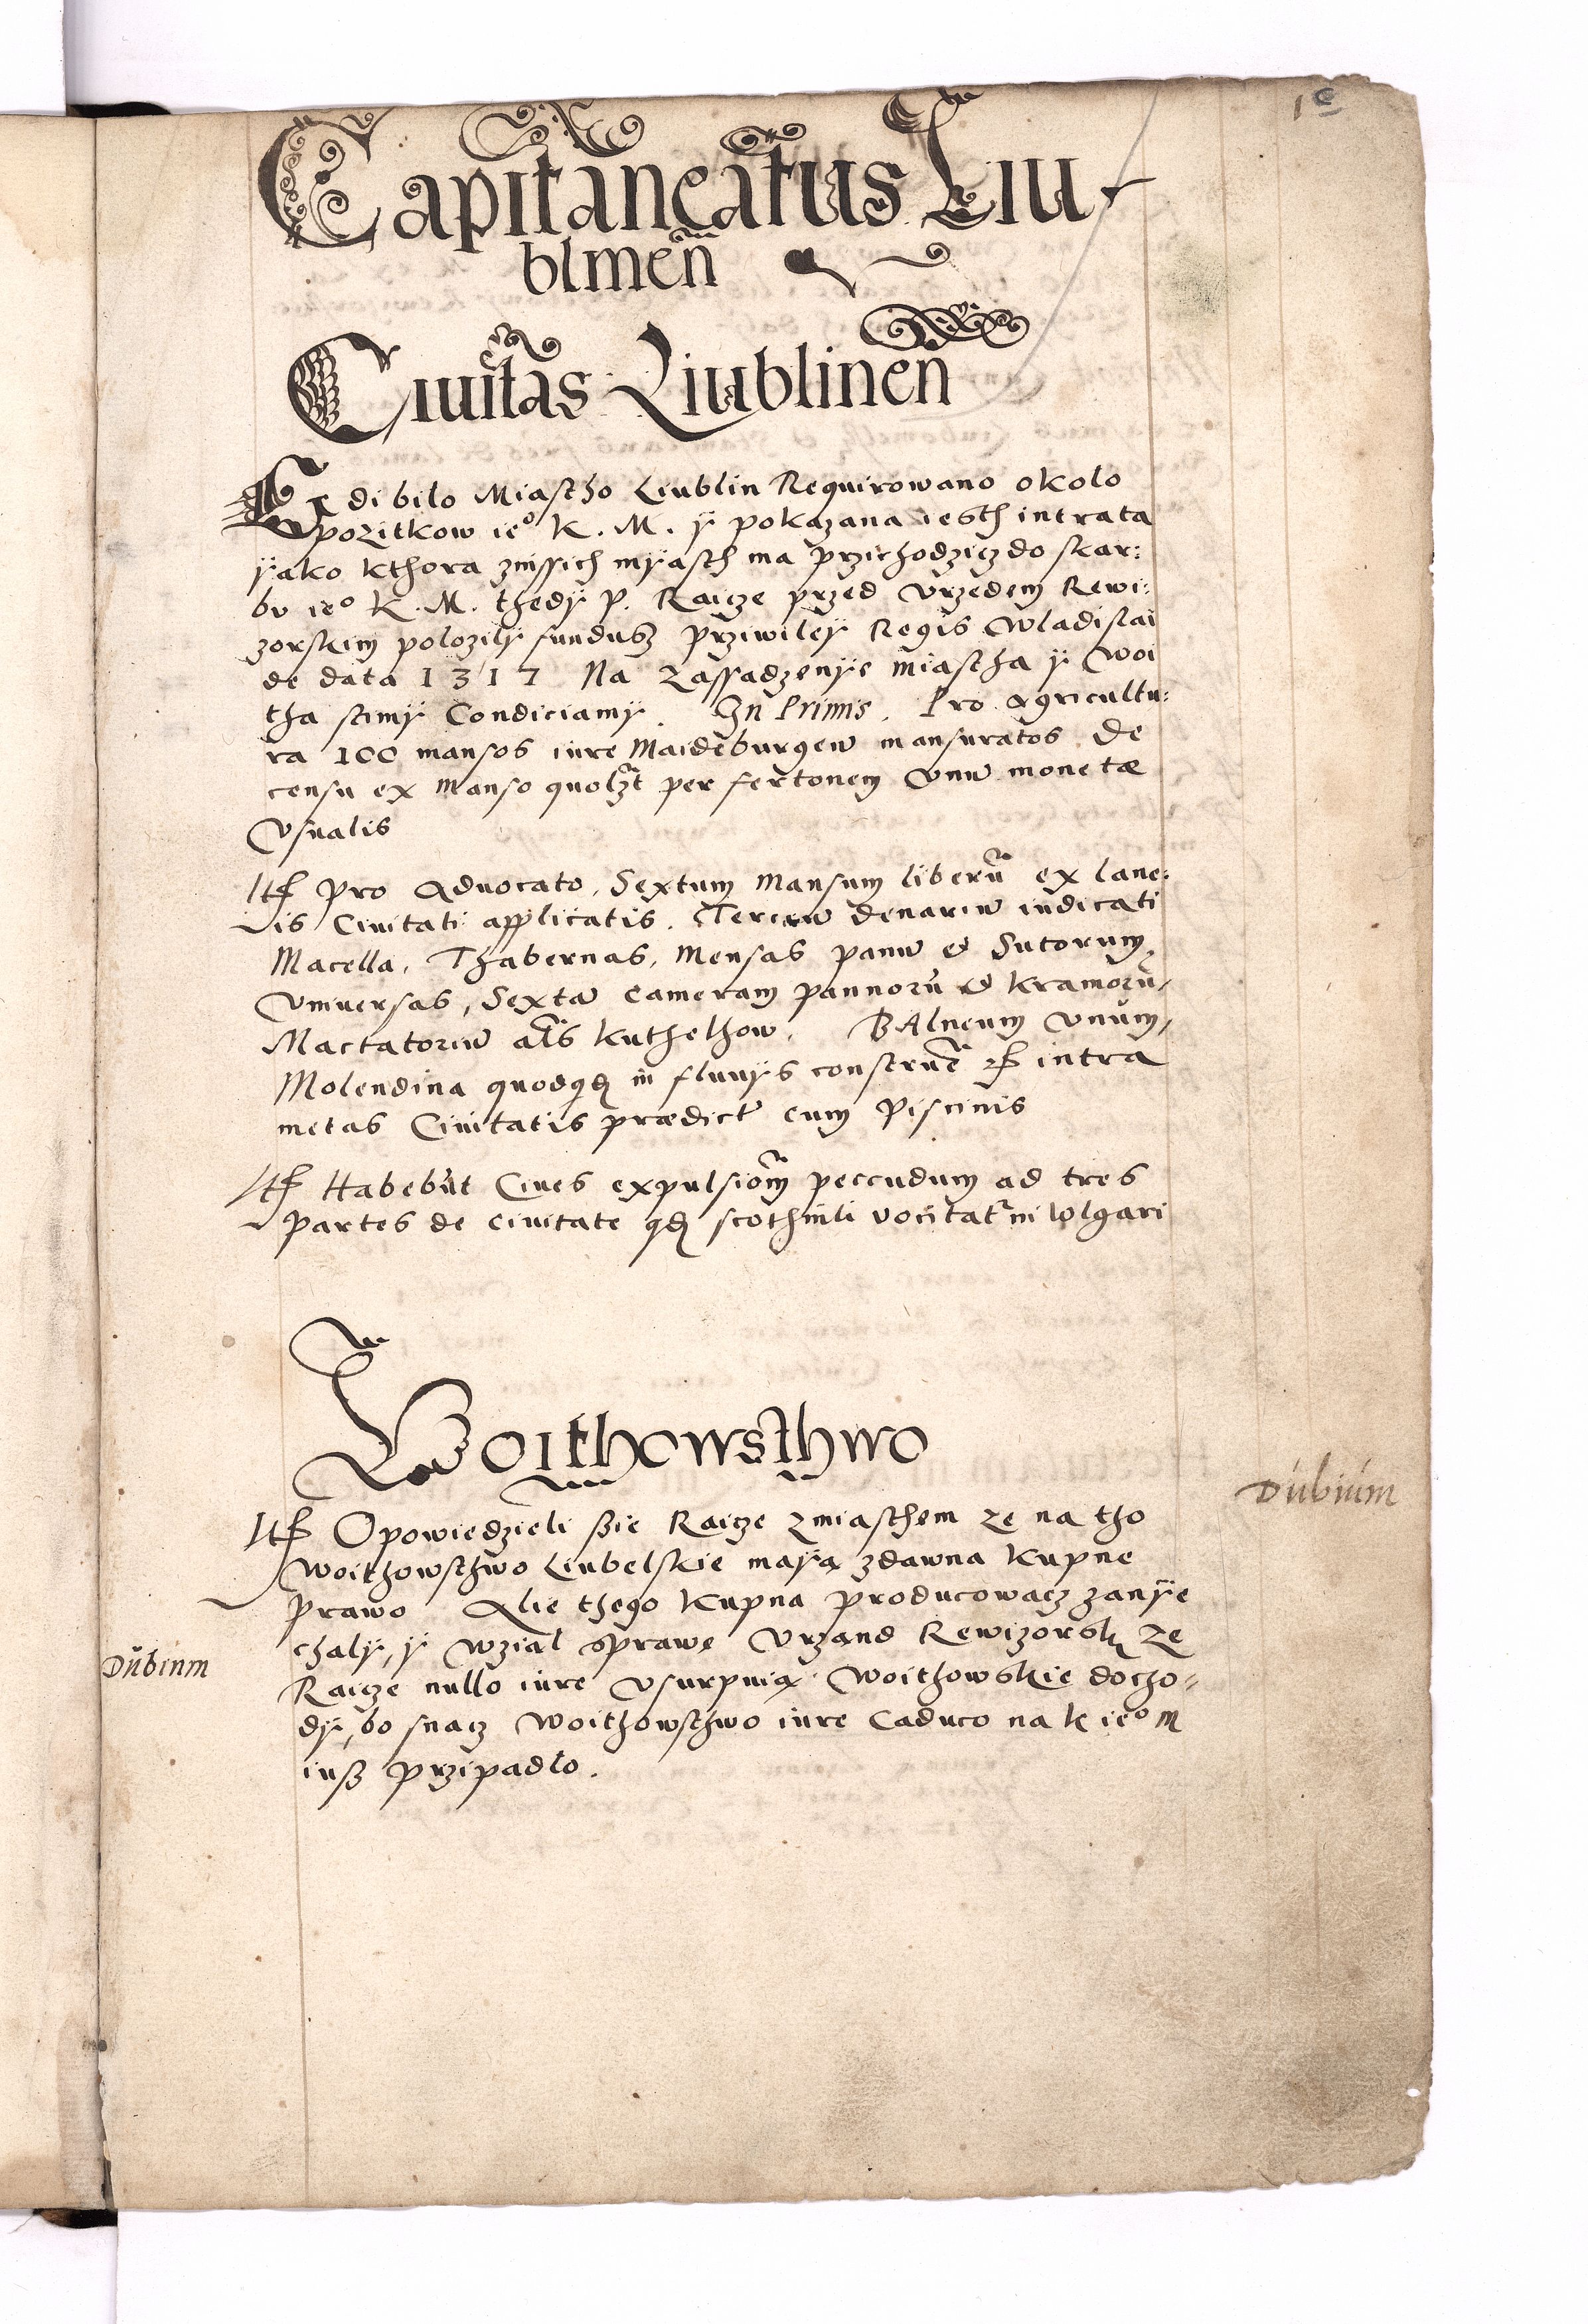 1
Capitaneatus Liu-
blinen̄
Ciuitas Liublinen̄
Gdi bilo Miastho Liublin Requirowano okolo
pozitkow ie° K. M. ÿ pokazana iesth intrata
ÿako kthora zinssich mÿasth ma przichodzicz do skar:
bu ie° K. M. thedÿ P. Raicze przed Vrzedem Rewi:
zorskim polozilÿ fundusz Prziwileÿ Regis Wladislai
de data 1317 Na Zassadzenÿe miastha ÿ Woi
tha stimÿ Condiciamÿ. In Primis. Pro Agricultu:
ra 100 mansos iure Maideburgen mansuratos De
censu ex manso quolzt per fertonem Vnū monetæ
Vsualis
Itē pro Aduocato, Sextum Mansum liberū ex lane:
is Ciuitati applicatis. Terciū denariū iudicati
Macella, Thabernas, Mensas panū et Sutorum
Vniuersas, Sextā Cameram pannorū et Kramorū,
Mactatoriū als Kuthelhow. BAlneum Vnum,
Molendina quodqd in fluuÿs construē intra
metas Ciuitatis prædict cum Piscinis
Itē Habebūt Ciues expulsiom peccudum ad tres
partes de ciuitate qd scothnili vocitatr in wlgari
Woithowsthwo
Dubium
Itē Opowiedzieli ßie Raicze zmiasthem ze na tho
Woithowsthwo Liubelskie maÿą zdawna Kupne
prawo Alie thego Kupna producowacz zanÿe
chalÿ, ÿ wzial sprawę Vrzand Rewizorsk ze
Dubium
Raicze nullo iure Vsurpuią Woithowskie docho=
dÿ, bo snacz Woithowsthwo iure Caduco na K ie° M
iuß przipadlo.